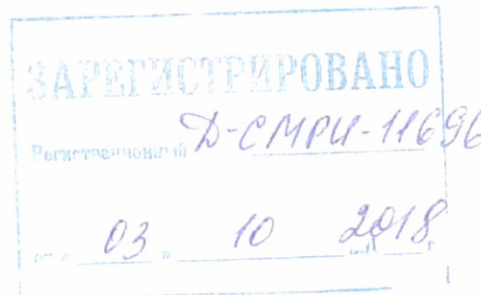 ЗАРЕГИСТРИРОВАНО
Регистрационный Д-СМРИ-11696
от « 03 » 10 2018 г.